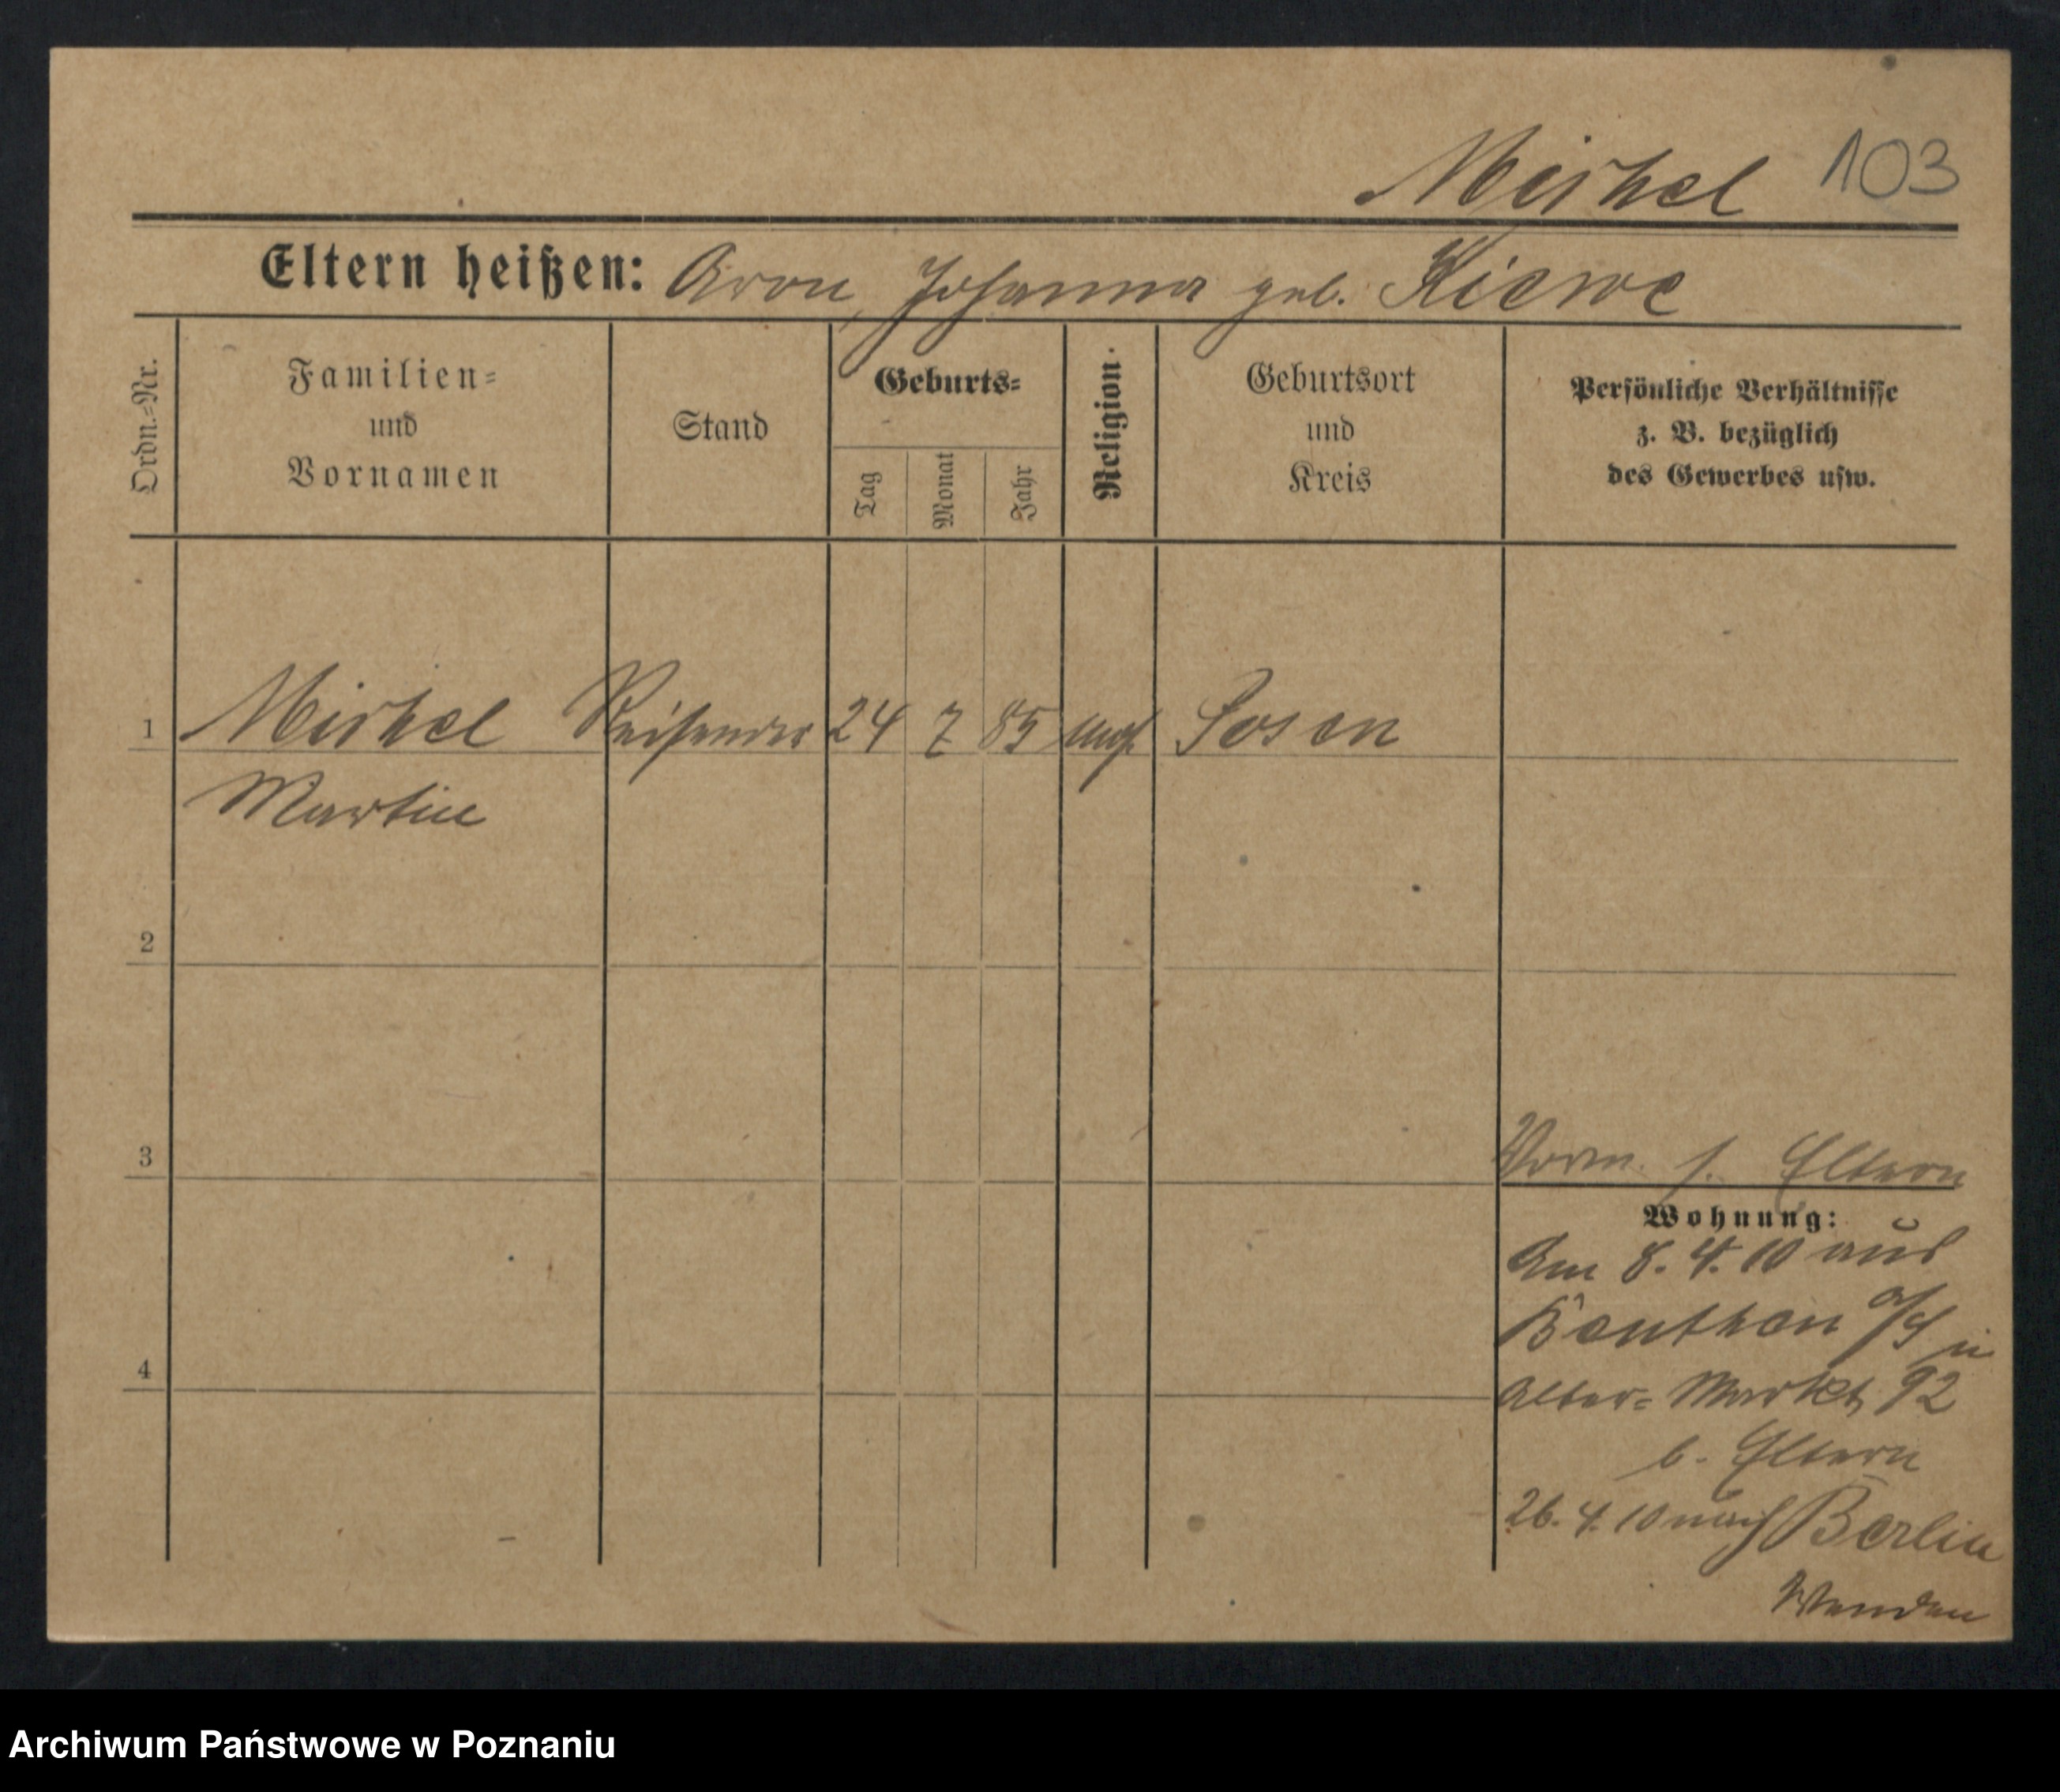 Mirkel 103
Eltern heißen: Aron, Johanna geb. Kiewe
Ordn.-Nr.
Familien-
und
Vornamen
Stand
Geburts-
Tag
Monat
Jahr
Religion.
Geburtsort
und
Kreis
Persönliche Verhältnisse
z. B. bezüglich
des Gewerbes usw.
1 Mirkel Reisender 24 7 85 Posen
Martin
2
3
4
Vorm. s. Eltern
Wohnung:
Am 8. 4. 10 aus
Beuthen o/S in
Alter- Markt 92
b. Eltern
26. 4. 10 nach Berlin
Wenden
Archiwum Państwowe w Poznaniu